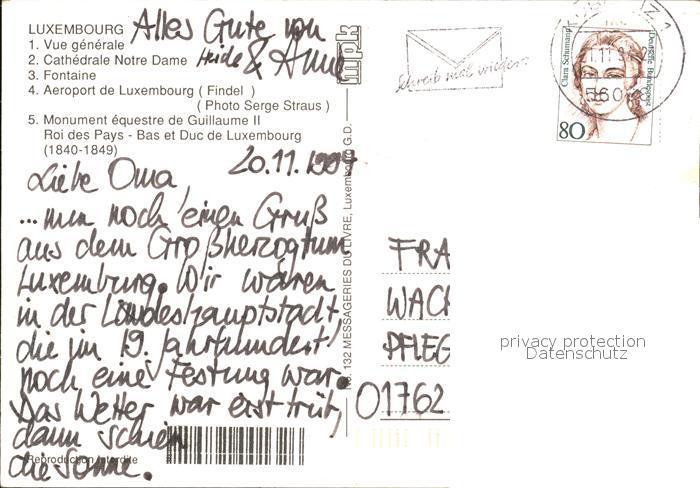 LUXEMBOURG
1. Vue générale
2. Cathédrale Notre Dame
3. Fontaine
4. Aeroport de Luxembourg ( Findel )
( Photo Serge Straus )
5. Monument équestre de Guillaume II
Roi des Pays - Bas et Duc de Luxembourg
(1840-1849)
Alles Gute von
Heide & Anne
20.11.1997
Liebe Oma,
... nun noch einen Gruß
aus dem Großherzogtum
Luxemburg. Wir waren
in der Landeshauptstadt,
die im 19. Jahrhundert
noch eine Festung war.
Das Wetter war erst trüb,
dann schien
die Sonne.
Reproduction interdite
No. 132 MESSAGERIES DU LIVRE, Luxembourg G.D.
mpk
Schreib mal wieder
Clara Schumann
Deutsche Bundespost
80
FRA
WACH
PFLEG
01762
privacy protection
Datenschutz